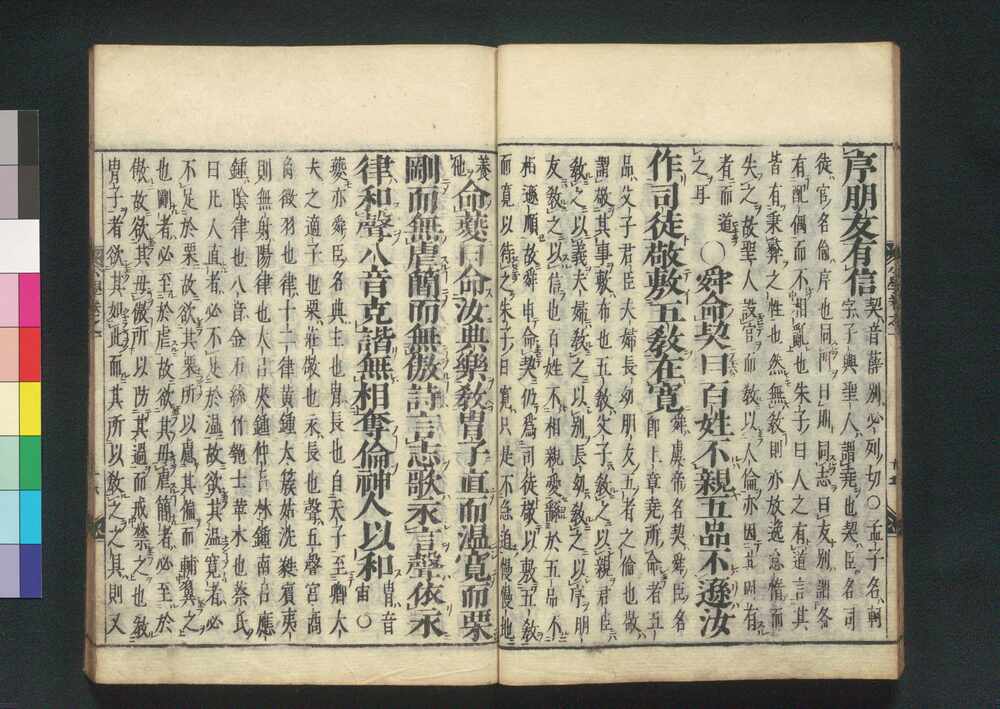 序朋友有信 契音薛別必列切○孟子名軻
字子輿聖人謂堯也契臣名司
徒官名倫序也同門曰朋同志曰友別謂各
有配偶而不相亂也朱子曰人之有道言其
皆有秉彝之性也然無教則亦放逸怠惰而
失之故聖人設官而教以人倫亦因其明有
者而道
之耳 ○舜命契曰百姓不親五品不遜汝
作司徒敬敷五教在寬 舜虞帝名契舜臣名
即上章堯所命者五
品父子君臣夫婦長幼朋友五者之倫也敬
謂敬其事敷布也五教父子教之以親君臣
教之以義夫婦教之以別長幼教之以序朋
友教之以信也百姓不相親愛於五品不
相遜順故舜申命契仍為司徒敬以敷五教
而寬以待之朱子曰寬只是不急迫慢慢地
養
他 命夔曰命汝典樂教冑子直而溫寬而栗
剛而無虐簡而無傲詩言志歌永言聲依永
律和聲八音克諧無相奪倫神人以和 冑音
宙○
夔亦舜臣名典主也冑長也自天子至卿大
夫之適子也栗莊敬也永長也聲五聲宮商
角徵羽也律十二律黃鍾太簇姑洗蕤賓夷
則無射陽律也大呂夾鍾仲呂林鍾南呂應
鍾陰律也八音金石絲竹匏土革木也蔡氏
曰凡人直者必不足於溫故欲其溫寬者必
不足於栗故欲其栗所以慮其偏而輔翼之
也剛者必至於虐故欲其毋虐簡者必至於
傲故欲其毋傲所以防其過而戒禁之也教
冑子者欲其如此而其所以教之之具則又